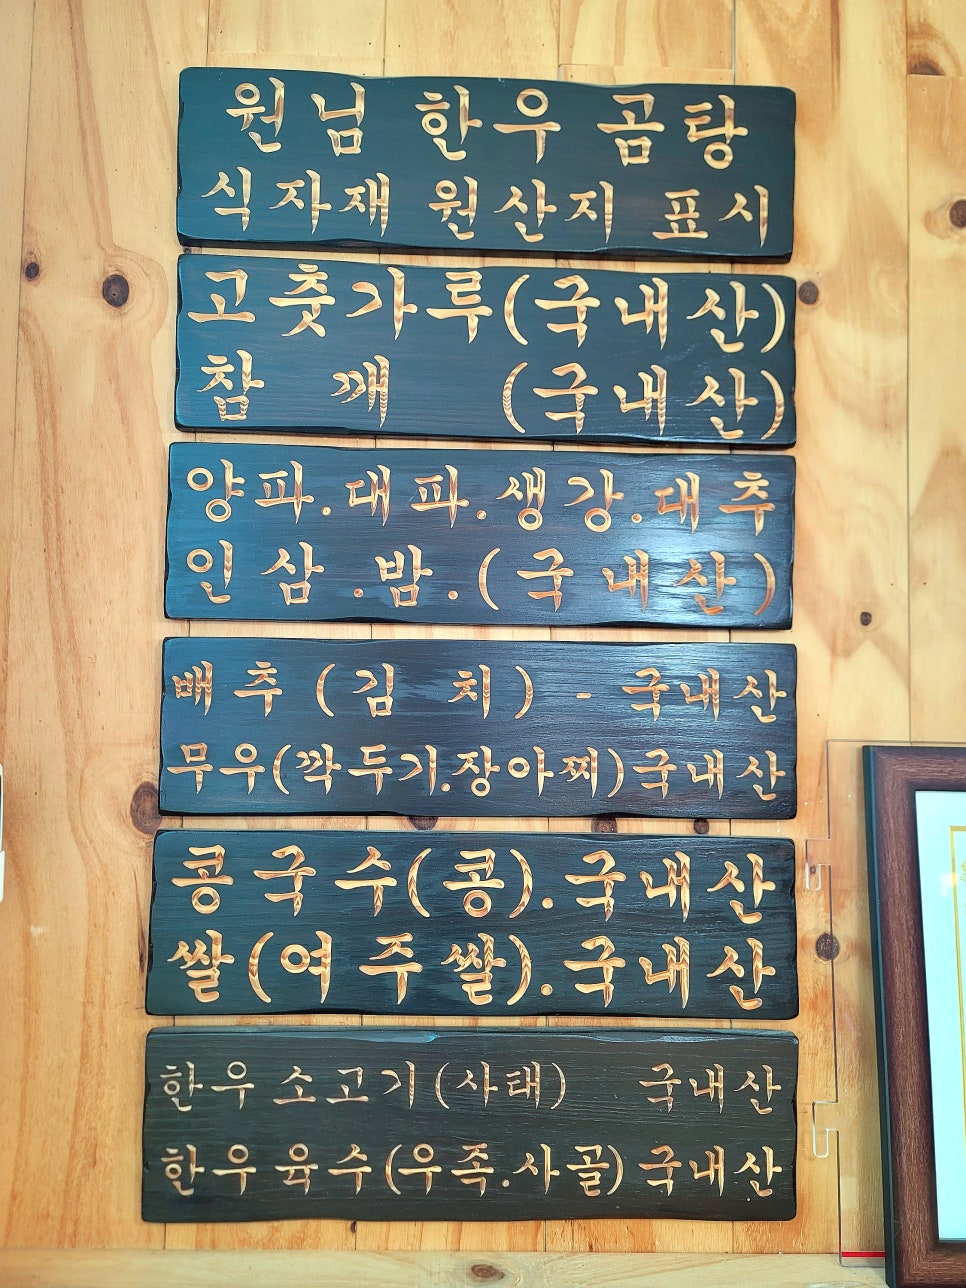 원님 한우 곰탕
식자재 원산지 표시
고춧가루(국내산)
참깨 (국내산)
양파.대파.생강.대추
인삼.밤.(국내산)
배추(김치)-국내산
무우(깍두기.장아찌)국내산
콩국수(콩).국내산
쌀(여주쌀).국내산
한우 소고기(사태) 국내산
한우 육수(우족.사골)국내산